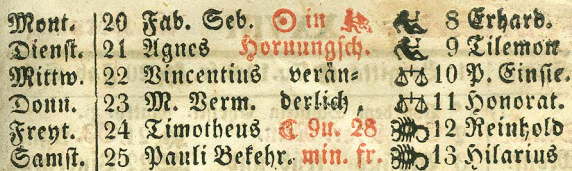 Mont. 20 Fab. Seb. ☉ in ♒ 8 Erhard.
Dienst. 21 Agnes Hornungsch. 9 Tilemon
Mittw. 22 Vincentius verän- ♎ 10 P. Einsie.
Donn. 23 M. Verm. derlich, ♎ 11 Honorat.
Freyt. 24 Timotheus ☾ 9u. 28 ♏ 12 Reinhold
Samst. 25 Pauli Bekehr. min. fr. ♏ 13 Hilarius